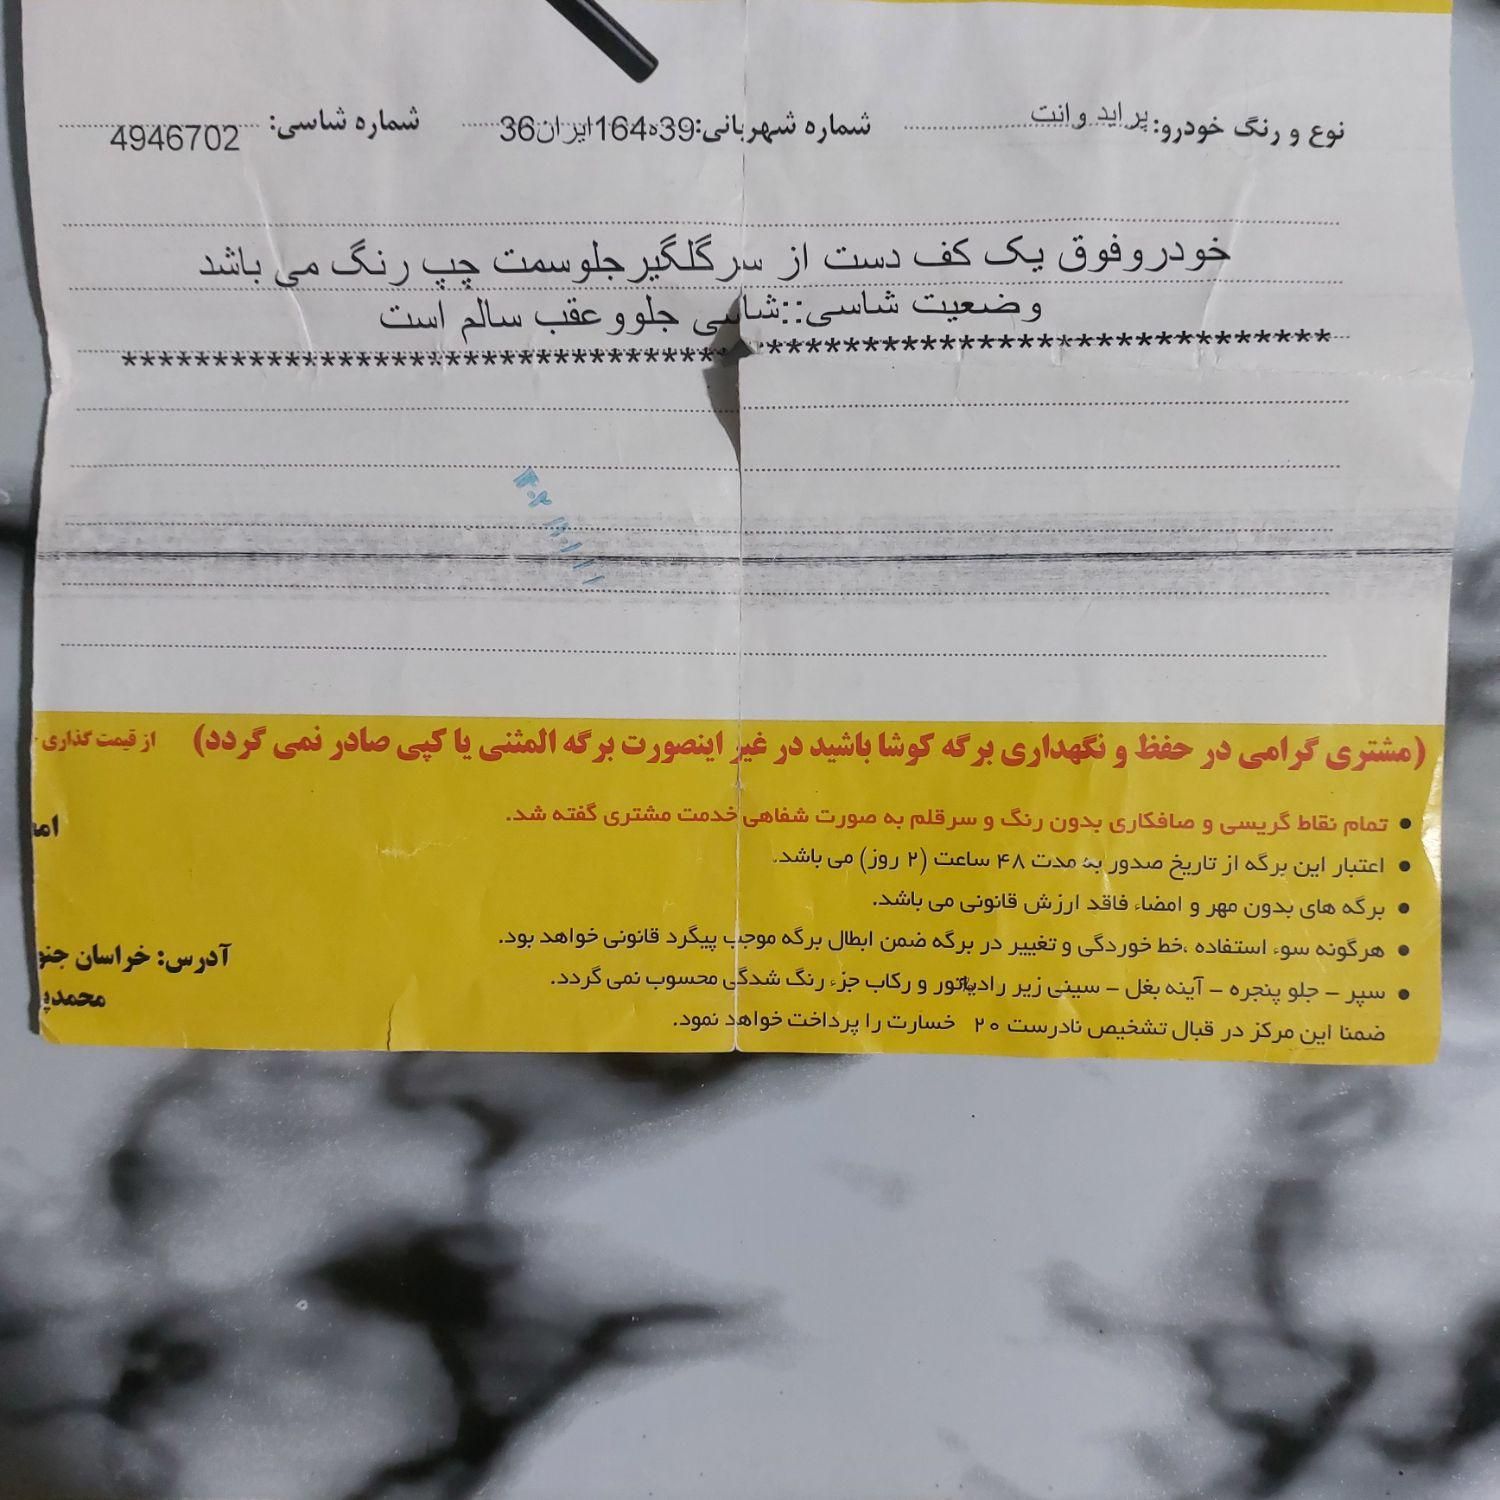 نوع و رنگ خودرو: پراید وانت شماره شهربانی: 39ه164ایران36 شماره شاسی: 4946702
خودروفوق یک کف دست از سرگلگیرجلوسمت چپ رنگ می باشد
وضعیت شاسی::شاسی جلووعقب سالم است
****************************************************************
(مشتری گرامی در حفظ و نگهداری برگه کوشا باشید در غیر اینصورت برگه المثنی یا کپی صادر نمی گردد) از قیمت گذاری
تمام نقاط گریسی و صافکاری بدون رنگ و سرقلم به صورت شفاهی خدمت مشتری گفته شد.
اعتبار این برگه از تاریخ صدور به مدت ۴۸ ساعت (۲ روز) می باشد.
برگه های بدون مهر و امضاء فاقد ارزش قانونی می باشد.
هرگونه سوء استفاده ،خط خوردگی و تغییر در برگه ضمن ابطال برگه موجب پیگرد قانونی خواهد بود.
سپر - جلو پنجره - آینه بغل - سینی زیر رادیاتور و رکاب جزء رنگ شدگی محسوب نمی گردد.
ضمنا این مرکز در قبال تشخیص نادرست ۲۰ خسارت را پرداخت خواهد نمود.
آدرس: خراسان جنو
محمدپ